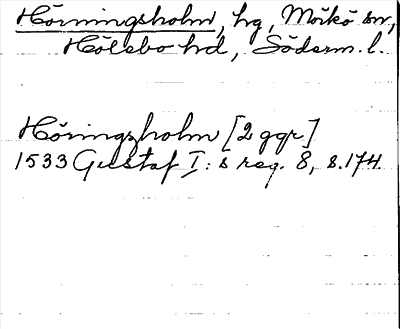 Hörningsholm, hg, Mörkö sn,
Hölebo hd, Söderm. l.
Höringzholm [2 ggr]
1533 Gustaf I: s reg. 8, s. 174.